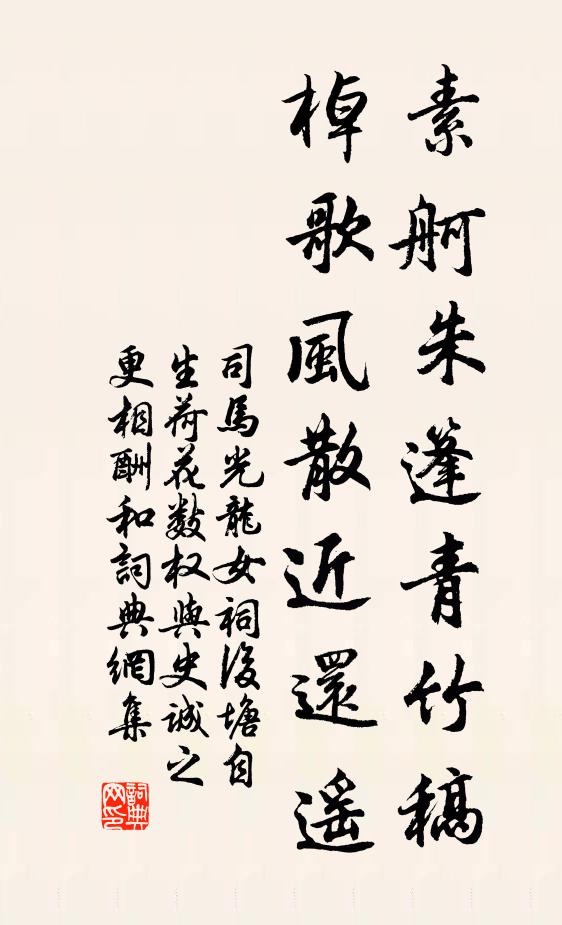 素舸朱篷青竹稿
棹歌風散近還遥
司馬光龍女祠後塘自
生荷花数枝與史誠之
更相酬和詞典網集
詞典
网印